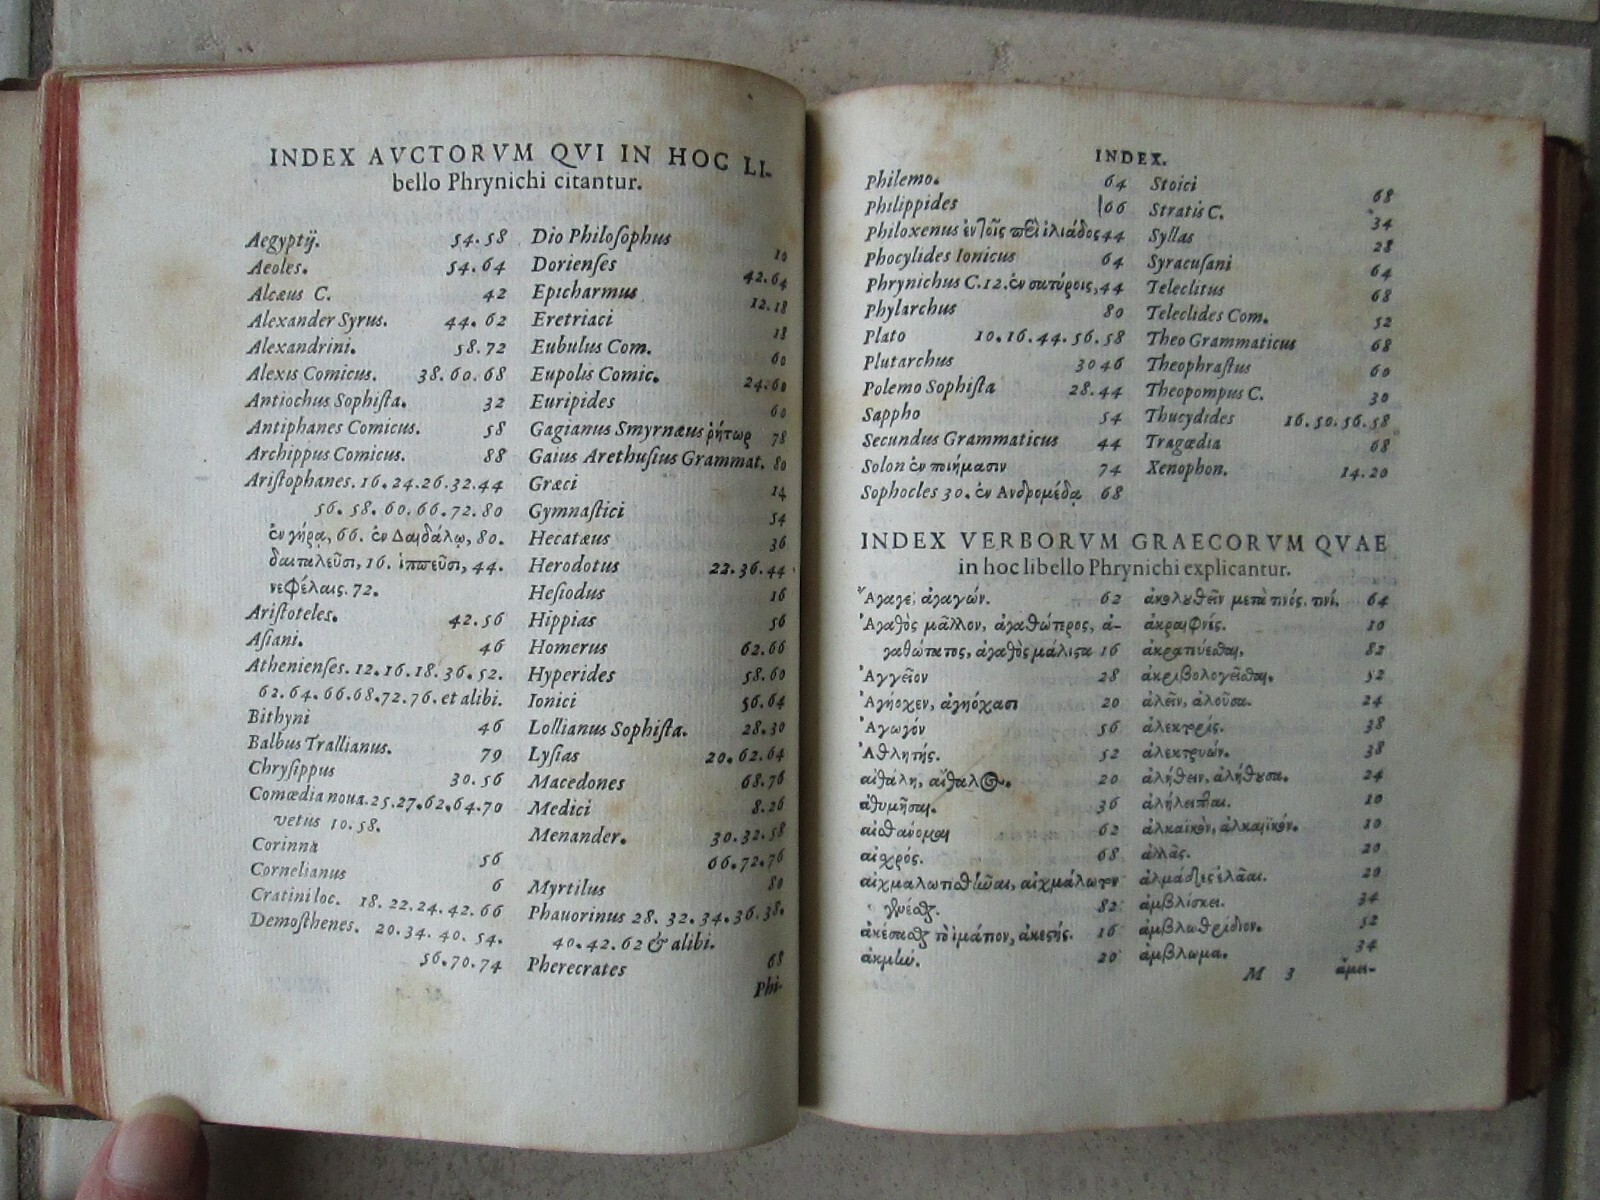 INDEX AVCTORVM QVI IN HOC LI-
bello Phrynichi citantur.
Aegyptij. 54. 58
Aeoles. 54. 64
Alcæus C. 42
Alexander Syrus. 44. 62
Alexandrini. 58. 72
Alexis Comicus. 38. 60. 68
Antiochus Sophiſta. 32
Antiphanes Comicus. 58
Archippus Comicus. 88
Ariſtophanes. 16. 24. 26. 32. 44
56. 58. 60. 66. 72. 80
ἐν γήρᾳ, 66. ἐν Δαιδάλῳ, 80.
δαιταλεῦσι, 16. ἱππεῦσι, 44.
νεφέλαις. 72.
Ariſtoteles. 42. 56
Aſiani. 46
Athenienſes. 12. 16. 18. 36. 52.
62. 64. 66. 68. 72. 76. et alibi.
Bithyni 46
Balbus Trallianus. 79
Chryſippus 30. 56
Comœdia noua. 25. 27. 62. 64. 70
vetus 10. 58.
Corinna 56
Cornelianus 6
Cratini loc. 18. 22. 24. 42. 66
Demoſthenes. 20. 34. 40. 54.
56. 70. 74
Dio Philoſophus 10
Dorienſes 42. 64
Epicharmus 12. 18
Eretriaci 18
Eubulus Com. 60
Eupolis Comic. 24. 60
Euripides 60
Gagianus Smyrnæus ῥήτωρ 78
Gaius Arethuſius Grammat. 80
Græci 14
Gymnaſtici 54
Hecatæus 36
Herodotus 22. 36. 44
Heſiodus 16
Hippias 56
Homerus 62. 66
Hyperides 58. 60
Ionici 56. 64
Lollianus Sophiſta. 28. 30
Lyſias 20. 62. 64
Macedones 68. 76
Medici 8. 26
Menander. 30. 32. 58
66. 72. 76
Myrtilus 80
Phauorinus 28. 32. 34. 36. 38.
40. 42. 62 & alibi.
Pherecrates 68
Phi-
INDEX.
Philemo. 64
Philippides 66
Philoxenus ἐν τοῖς περὶ ἰλιάδος 44
Phocylides Ionicus 64
Phrynichus C. 12. ἐν σατύροις, 44
Phylarchus 80
Plato 10. 16. 44. 56. 58
Plutarchus 30 46
Polemo Sophiſta 28. 44
Sappho 54
Secundus Grammaticus 44
Solon ἐν ποιήμασιν 74
Sophocles 30. ἐν Ανδρομέδᾳ 68
Stoici 68
Stratis C. 34
Syllas 28
Syracuſani 64
Teleclitus 68
Teleclides Com. 52
Theo Grammaticus 68
Theophraſtus 60
Theopompus C. 30
Thucydides 16. 50. 56. 58
Tragœdia 68
Xenophon. 14. 20
INDEX VERBORVM GRAECORVM QVAE
in hoc libello Phrynichi explicantur.
Ἄγαγε, ἀγαγών. 62
Ἀγαθὸς μᾶλλον, ἀγαθώτερος, ἀ-
γαθώτατος, ἀγαθὸς μάλιστα 16
Ἀγγεῖον 28
Ἀγήοχεν, ἀγηόχασι 20
Ἀγωγόν 56
Ἀθλητής. 52
αἰθάλη, αἴθαλος. 20
ἀθυμῆσαι. 36
αἰσθάνομαι 62
αἰσχρός. 68
αἰχμαλωτισθῆναι, αἰχμάλωτον
γενέσθαι. 82
ἀκέσασθαι τὸ ἱμάτιον, ἀκεστής. 16
ἀκμὴν. 20
ἀκολουθεῖν μετὰ τινός. τινί. 64
ἀκραιφνές. 10
82
ἀκριβολογεῖσθαι. 52
ἀλεῖν, ἀλοῦσα. 24
ἀλεκτρίς. 38
ἀλεκτρυών. 38
ἀλήθειν, ἀλήθουσα. 24
ἀλήλειπται. 10
ἀλκαϊκὸν, ἀλκαιϊκόν. 10
ἀλλᾶς. 20
ἁλμάδες ἐλᾶαι. 20
ἀμβλίσκει. 34
ἀμβλωθρίδιον. 52
ἄμβλωμα. 34
M 3